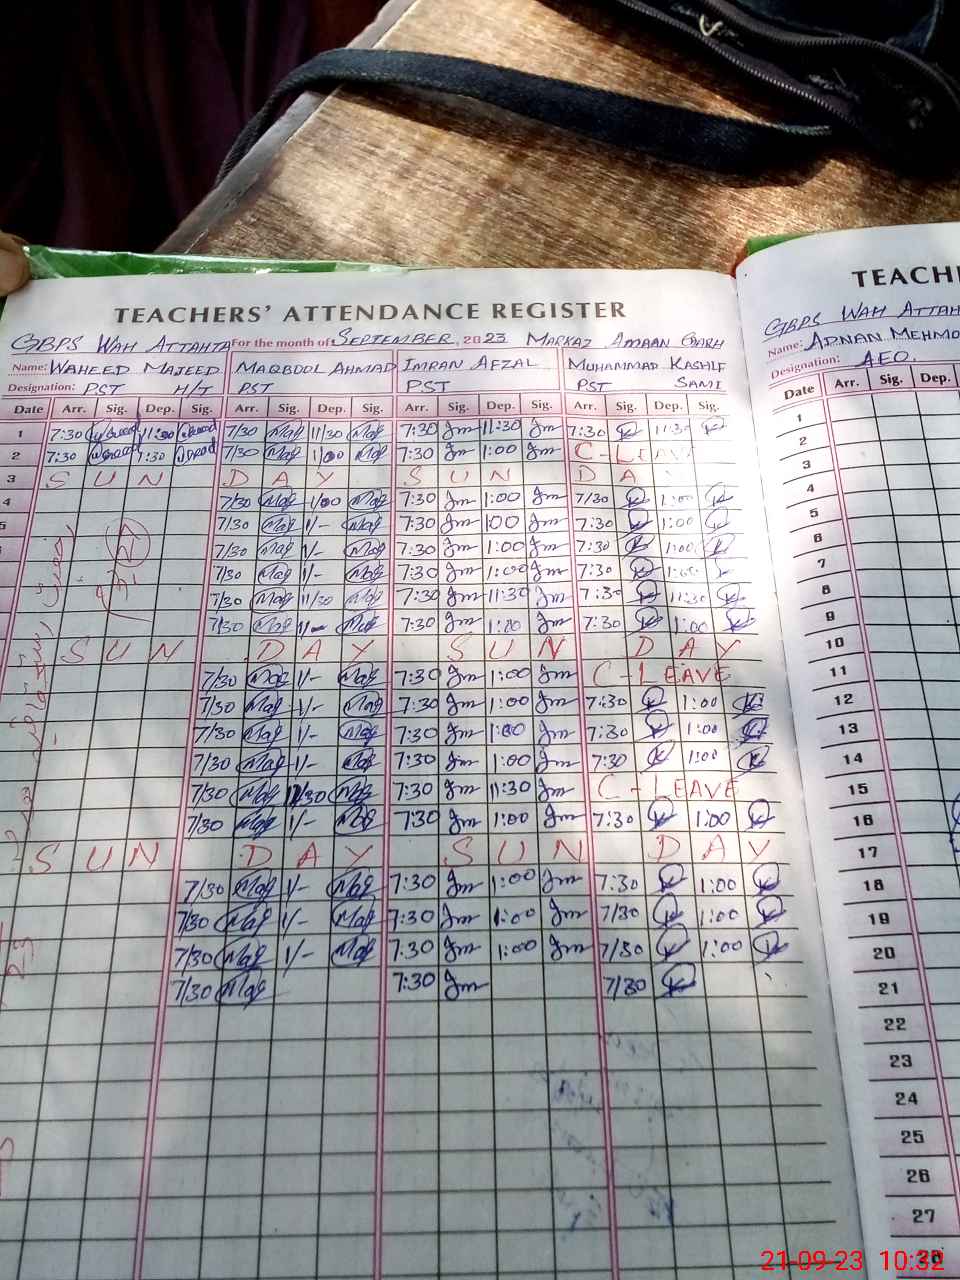 TEACHERS' ATTENDANCE REGISTER
GBPS WAH ATTAHTA For the month of SEPTEMBER, 2023 MARKAZ AMAAN GARH
Name: WAHEED MAJEED MAQBOOL AHMAD IMRAN AFZAL MUHAMMAD KASHIF
Designation: PST H/T PST PST PST SAMI
Date Arr. Sig. Dep. Sig. Arr. Sig. Dep. Sig. Arr. Sig. Dep. Sig. Arr. Sig. Dep. Sig.
1 7:30 11:30 7/30 Maq 11/30 Maq 7:30 Im 11:30 Im 7:30 K 11:30 K
2 7:30 1:30 7/30 Maq 1/00 Maq 7:30 Im 1:00 Im C-LEAVE
3 SUN DAY SUN DAY
4 7/30 Maq 1/00 Maq 7:30 Im 1:00 Im 7/30 K 1:00 K
5 7/30 Maq 1/- Maq 7:30 Im 1:00 Im 7:30 K 1:00 K
7/30 Maq 1/- Maq 7:30 Im 1:00 Im 7:30 K 1:00 K
7/30 Maq 1/- Maq 7:30 Im 1:00 Im 7:30 K 1:00
7/30 Maq 11/30 Maq 7:30 Im 11:30 Im 7:30 K 11:30 K
7/30 Maq 1/- Maq 7:30 Im 1:00 Im 7:30 K 1:00 K
SUN DAY SUN DAY
7/30 Maq 1/- Maq 7:30 Im 1:00 Im C-LEAVE
7/30 Maq 1/- Maq 7:30 Im 1:00 Im 7:30 K 1:00 K
7/30 Maq 1/- Maq 7:30 Im 1:00 Im 7:30 K 1:00 K
7/30 Maq 1/- Maq 7:30 Im 1:00 Im 7:30 K 1:00 K
7/30 Maq 11/30 Maq 7:30 Im 11:30 Im C-LEAVE
7/30 Maq 1/- Maq 7:30 Im 1:00 Im 7:30 K 1:00 K
SUN DAY SUN DAY
7/30 Maq 1/- Maq 7:30 Im 1:00 Im 7:30 K 1:00 K
7/30 Maq 1/- Maq 7:30 Im 1:00 Im 7/30 K 1:00 K
7/30 Maq 1/- Maq 7:30 Im 1:00 Im 7/30 K 1:00 K
7/30 Maq 7:30 Im 7/30 K
TEACH
GBPS WAH ATTAH
Name: ADNAN MEHMO
Designation: AEO.
Date Arr. Sig. Dep.
1
2
3
4
5
6
7
8
9
10
11
12
13
14
15
16
17
18
19
20
21
22
23
24
25
26
27
28
21-09-23 10:32